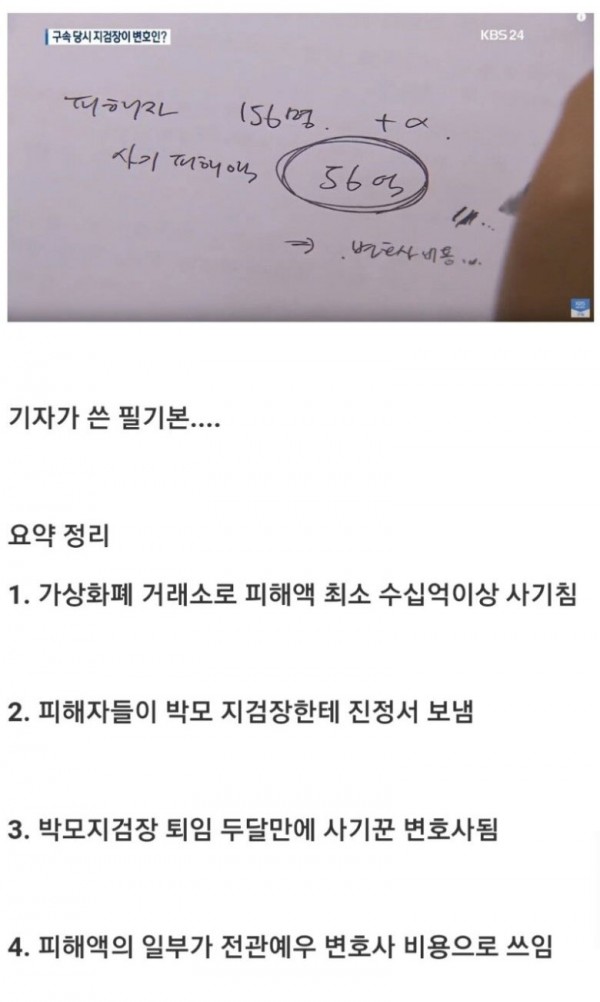 구속 당시 지검장이 변호인?
KBS 24
피해자 156명 + α.
사기 피해액 56억
⇒ 변호사비용...
기자가 쓴 필기본....
요약 정리
1. 가상화폐 거래소로 피해액 최소 수십억이상 사기침
2. 피해자들이 박모 지검장한테 진정서 보냄
3. 박모지검장 퇴임 두달만에 사기꾼 변호사됨
4. 피해액의 일부가 전관예우 변호사 비용으로 쓰임